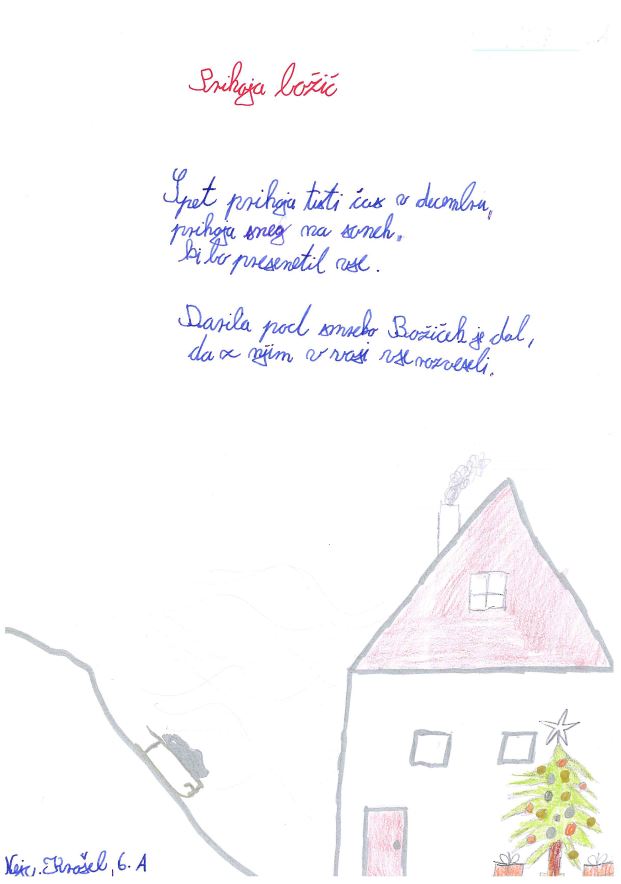 Prihaja božič
Spet prihaja tisti čas v decembru,
prihaja sneg na saneh,
ki bo presenetil vse.
Darila pod smreko Božiček je dal,
da z njim v vasi vse razveseli.
Nejc Krošel, 6. A